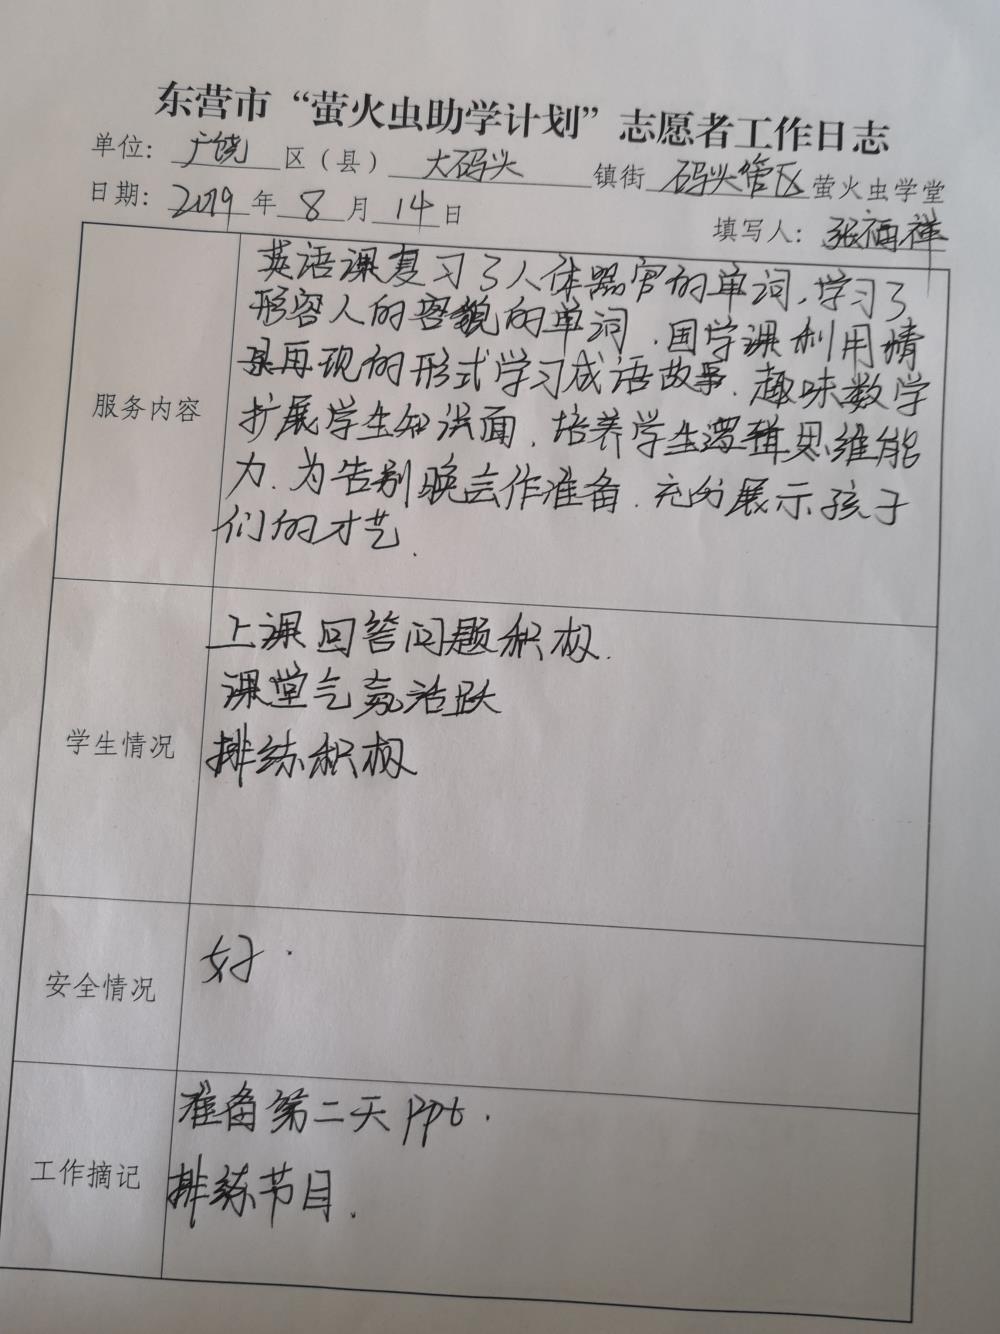 东营市“萤火虫助学计划”志愿者工作日志
单位：广饶区（县）大码头镇街码头管区萤火虫学堂
日期：2019年8月14日
填写人：张福祥
服务内容
英语课复习了人体器官的单词，学习了
形容人的容貌的单词．国学课利用情
景再现的形式学习成语故事．趣味数学
扩展学生知识面．培养学生逻辑思维能
力．为告别晚会作准备．充分展示孩子
们的才艺．
学生情况
上课回答问题积极．
课堂气氛活跃
排练积极
安全情况
好．
工作摘记
准备第二天ppt．
排练节目．